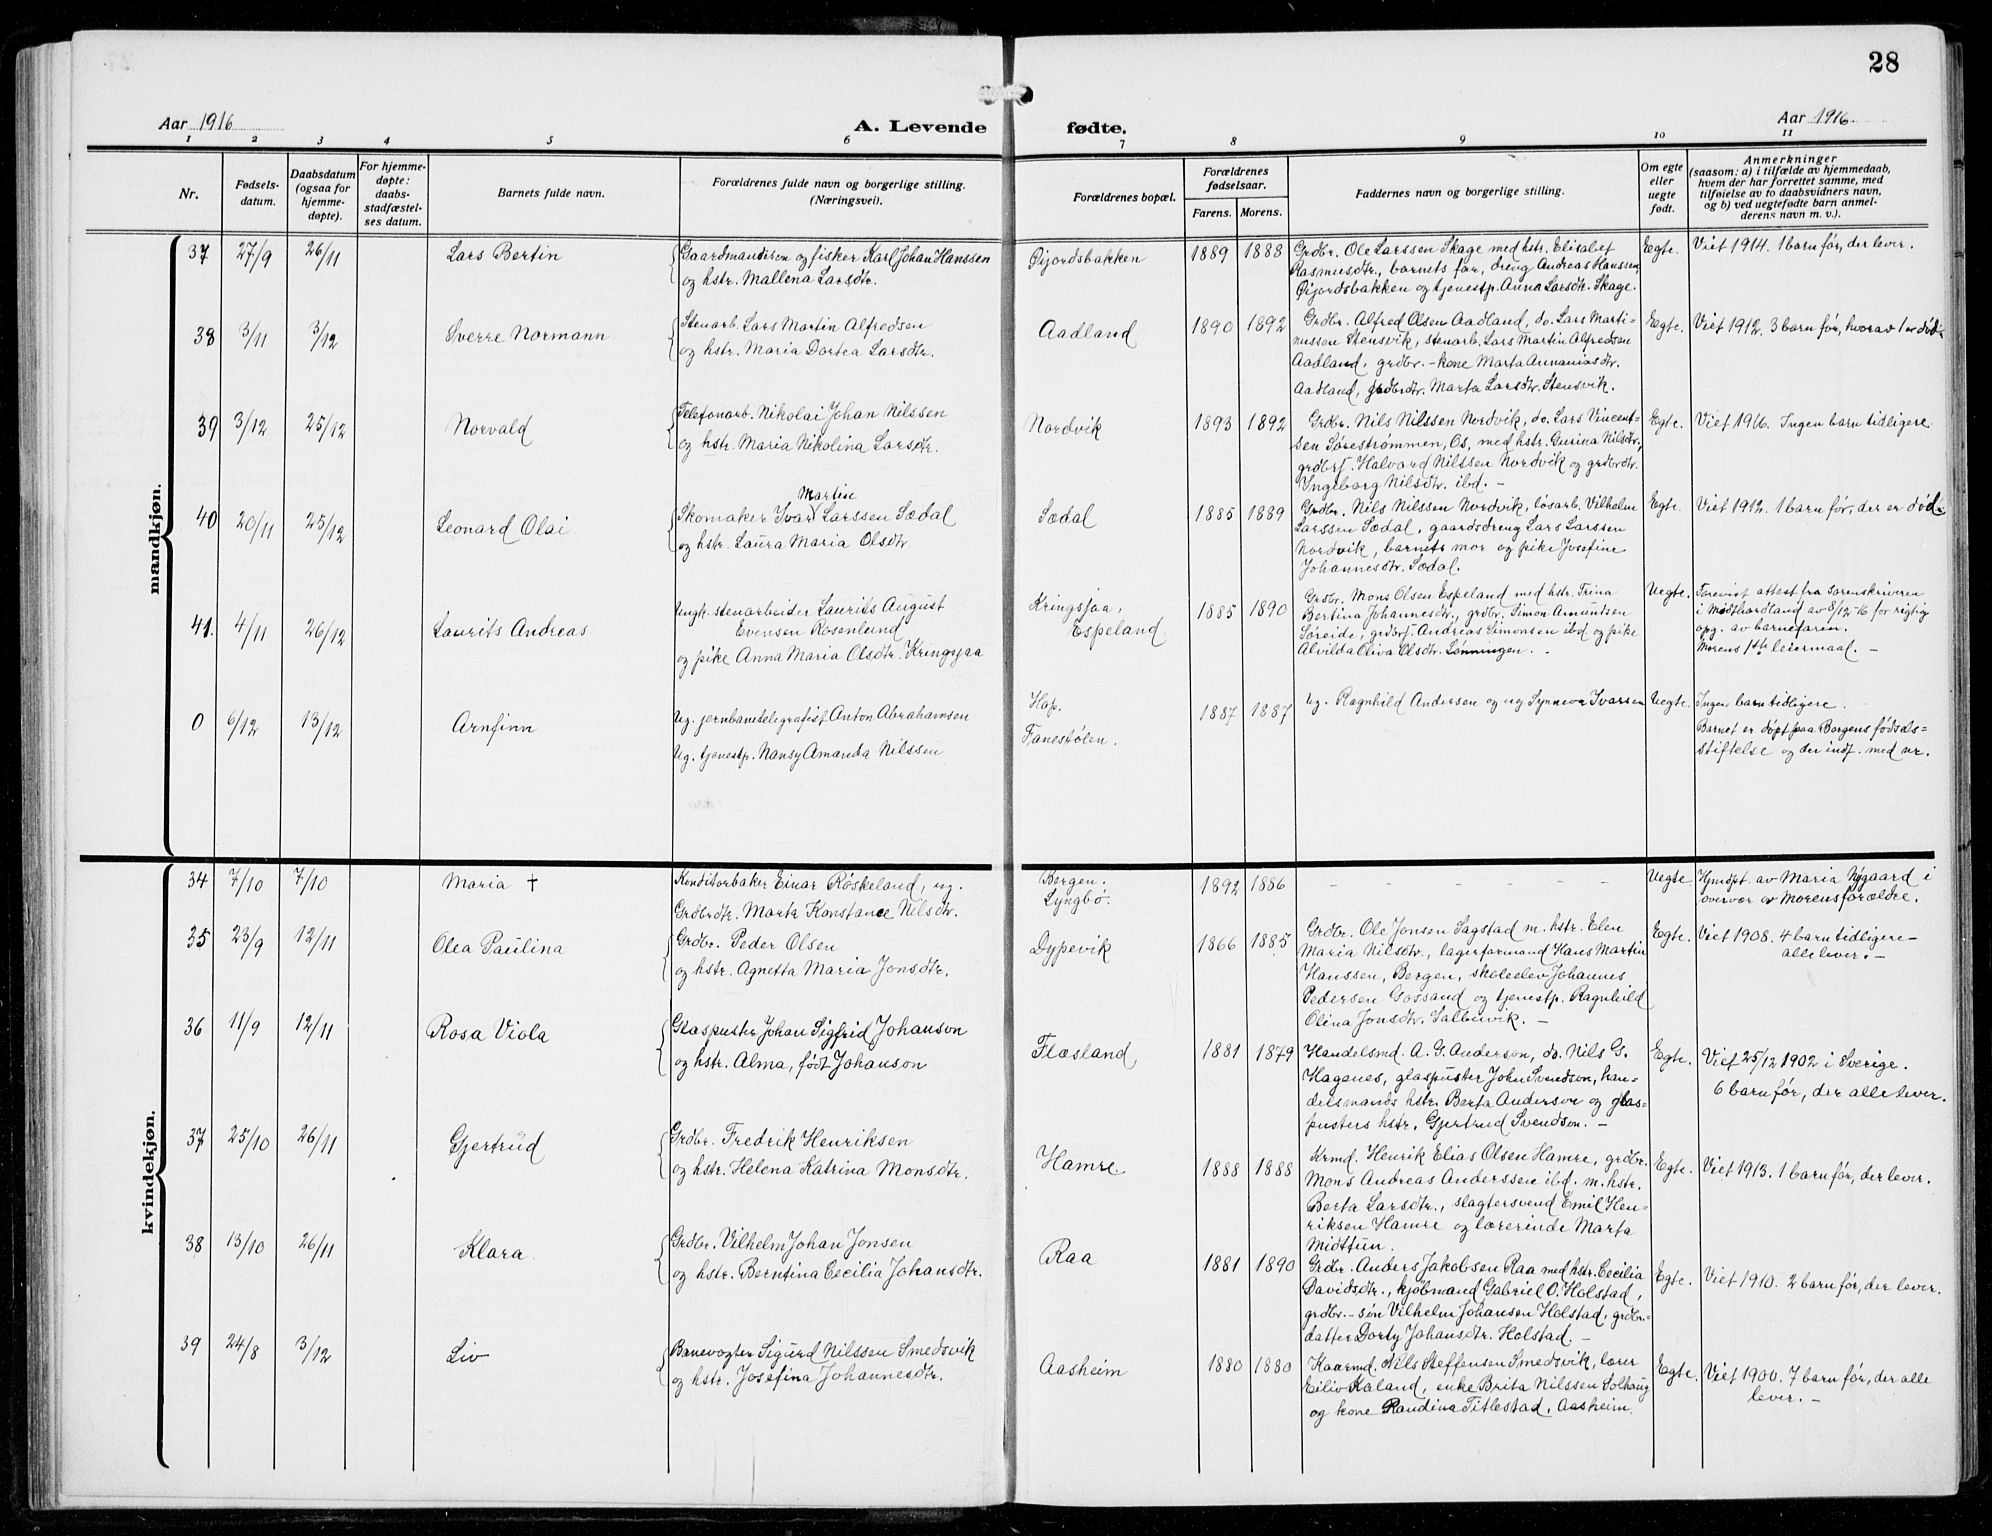 28
Aar 1916
A. Levende fødte.
Aar 1916.
1 2 3 4 5 6 7 8 9 10 11
Nr.
Fødsels-
datum.
Daabsdatum
(ogsaa for
hjemme-
døpte).
For hjemme-
døpte:
daabs-
stadfæstel-
ses datum.
Barnets fulde navn.
Forældrenes fulde navn og borgerlige stilling.
(Næringsvei).
Forældrenes bopæl.
Forældrenes
fødselsaar.
Farens. Morens.
Faddernes navn og borgerlige stilling.
Om egte
eller
uegte
født.
Anmerkninger
(saasom: a) i tilfælde av hjemmedaab,
hvem der har forrettet samme, med
tilføielse av to daabsvidners navn,
og b) ved uegtefødte barn anmel-
derens navn m. v.).
mandkjøn.
37 27/9 26/11 Lars Bertin
Gaardmandssøn og fisker Karl Johan Hanssen
og hstr. Mallena Larsdtr.
Øijordsbakken 1889 1888
Grdbr. Ole Larssen Skage med hstr. Elisabet
Rasmusdtr., barnets far, dreng Andreas Hanssen,
Øijordsbakken og tjenestp. Anna Larsdtr. Skage.
Egte. Viet 1914. 1 barn før, der lever.
38 3/11 3/12 Sverre Normann
Stenarb. Lars Martin Alfredsen
og hstr. Maria Dortea Larsdtr.
Aadland 1890 1892
Grdbr. Alfred Olsen Aadland, do. Lars Marti-
nussen Stensvik, stenarb. Lars Martin Alfredsen
Aadland, grdbr.-kone Marta Annaniasdtr.
Aadland, grdbrdtr. Marta Larsdtr. Stensvik.
Egte. Viet 1912. 3 barn før, hvorav 1 er død.
39 3/12 25/12 Norvald
Telefonarb. Nikolai Johan Nilssen
og hstr. Maria Nikolina Larsdtr.
Nordvik 1893 1892
Grdbr. Nils Nilssen Nordvik, do. Lars Vincent-
sen Sørestrømmen, Os, med hstr. Gurina Nilsdtr.,
grdbrs. Halvard Nilssen Nordvik og grdbrdtr.
Ingeborg Nilsdtr. ibd. –
Egte. Viet 1916. Ingen barn tidligere.
40 20/11 25/12 Leonard Olai
Martin
Skomaker Ivar Larssen Sædal
og hstr. Laura Maria Olsdtr.
Sædal 1885 1889
Grdbr. Nils Nilssen Nordvik, løsarb. Vilhelm
Larssen Sædal, gaardsdreng Lars Larssen
Nordvik, barnets mor og pike Josefine
Johannesdtr. Sædal.
Egte. Viet 1912. 1 barn før, der er død.
41. 4/11 26/12 Laurits Andreas
Ungk. stenarbeider Laurits August
Evensen Rosenlund
og pike Anna Maria Olsdtr. Kringsjaa
Kringsjaa,
Espeland.
1885 1890
Grdbr. Mons Olsen Espeland med hstr. Trina
Bertina Johannesdtr., grdbr. Simon Amundsen
Søreide, grdbrs. Andreas Simonsen ibd og pike
Alvilda Oliva Olsdtr. Lønningen. –
Uegte. Forevist attest fra Sorenskriveren
i Midthordland av 8/12-16 for rigtig
opg. av barnefaren.
Morens 1ste leiermaal. –
0 6/12 13/12 Arnfinn
Ug. jernbanetelegrafist Anton Abrahamsen
Ug. tjenestp. Nansy Amanda Nilssen
Hop.
Fanestølen.
1887 1887
Ug. Ragnhild Andersen og ug Synneva Ivarsen
Uegte. Ingen barn tidligere.
Barnet er døpt paa Bergens fødsels-
stiftelse og der indf. med nr.
kvindekjøn.
34 7/10 7/10 Maria †
Konditorbaker Einar Røskeland, ug.
Grdbrdtr. Marta Konstance Nilsdtr.
Bergen.
Lyngbø.
1892 1886
– – – – – – –
Uegte Hjmdpt. av Maria Nygaard i
overvær av Morens forældre.
35 23/9 12/11 Olea Paulina
Grdbr. Peder Olsen
og hstr. Agnetta Maria Jonsdtr.
Dypevik 1866 1885
Grdbr. Ole Jonsen Sagstad m. hstr. Elen
Maria Nilsdtr., lagerformand Hans Martin
Hanssen, Bergen, skoleelev Johannes
Pedersen Gossand og tjenestp. Ragnhild
Olina Jonsdtr. Salbuvik. –
Egte. Viet 1908. 4 barn tidligere –
alle lever. –
36 11/9 12/11 Rosa Viola
Glaspuster Johan Sigfrid Johanson
og hstr. Alma, født Johanson
Flæsland 1881 1879
Handelsmd. A. G. Anderson, do. Nils G.
Hagenes, glaspuster John Svendson, han-
delsmands hstr. Berta Anderson og glas-
pusters hstr. Gjertrud Svendson. –
Egte. Viet 25/12 1902 i Sverige.
6 barn før, der alle lever.
37 25/10 26/11 Gjertrud
Grdbr. Fredrik Henriksen
og hstr. Helena Katrina Monsdtr.
Hamre 1888 1888
Krmd. Henrik Elias Olsen Hamre, grdbr.
Mons Andreas Anderssen ibd. m. hstr.
Berta Larsdtr., slagtersvend Emil Hen-
riksen Hamre og lærerinde Marta
Midttun.
Egte. Viet 1913. 1 barn før, der lever.
38 13/10 26/11 Klara
Grdbr. Vilhelm Johan Jonsen
og hstr. Berntina Cecilia Johansdtr.
Raa 1881 1890
Grdbr. Anders Jakobsen Raa med hstr. Cecilia
Davidsdtr., kjøbmand Gabriel O. Holstad,
grdbr.-søn Vilhelm Johansen Holstad, grdbr.-
datter Dorty Johansdtr. Holstad. –
Egte. Viet 1910. 2 barn før, der lever.
39 24/8 3/12 Liv
Banevogter Sigurd Nilssen Smedsvik
og hstr. Josefina Johannesdtr.
Aasheim 1880 1880
Kaarmd. Nils Steffensen Smedsvik, lærer
Eiliv Kaland, enke Brita Nilssen Solhaug
og kone Randina Titlestad, Aasheim.
Egte. Viet 1900. 7 barn før, der alle
lever. –